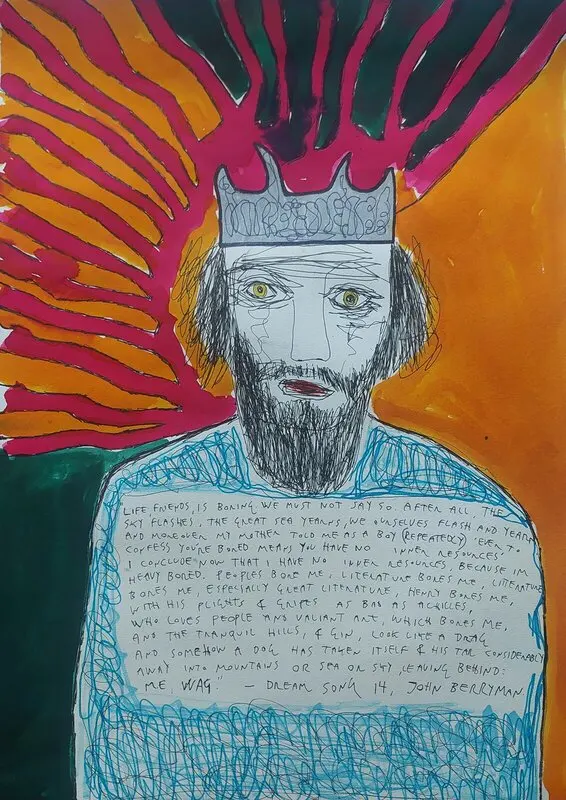 LIFE, FRIENDS, IS BORING. WE MUST NOT SAY SO. AFTER ALL, THE
SKY FLASHES, THE GREAT SEA YEARNS, WE OURSELVES FLASH AND YEARN
AND MOREOVER MY MOTHER TOLD ME AS A BOY (REPEATEDLY) 'EVER TO
CONFESS YOU'RE BORED MEANS YOU HAVE NO INNER RESOURCES'
I CONCLUDE NOW THAT I HAVE NO INNER RESOURCES, BECAUSE IM
HEAVY BORED. PEOPLES BORE ME, LITERATURE BORES ME, LITERATURE
BORES ME, ESPECIALLY GREAT LITERATURE, HENRY BORES ME,
WITH HIS PLIGHTS & GRIPES AS BAD AS ACHILLES,
WHO LOVES PEOPLE AND VALIANT ART, WHICH BORES ME,
AND THE TRANQUIL HILLS, & GIN, LOOK LIKE A DRAG
AND SOMEHOW A DOG HAS TAKEN ITSELF & HIS TAIL CONSIDERABLY
AWAY INTO MOUNTAINS OR SEA OR SKY, LEAVING BEHIND:
ME, WAG." - DREAM SONG 14, JOHN BERRYMAN